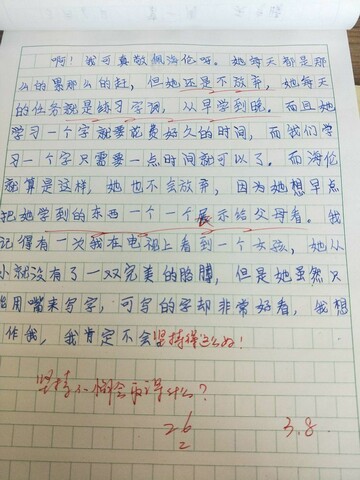 啊！我可真敬佩海伦呀。她每天都是那
么的累那么的赶，但她还是不放弃，她每天
的任务就是练习字词，从早学到晚。而且她
学习一个字就要花费好久的时间，而我们学
习一个字只需要一点时间就可以了。而海伦
就算是这样，她也不会放弃，因为她想早点
把她学到的东西一个一个展示给父母看。我
记得有一次我在电视上看到一个女孩，她从
小就没有了一双完美的胳膊，但是她虽然只
能用嘴来写字，可写的字却非常好看，我想
作我，我肯定不会坚持这么好！
坚持不懈会取得什么？
26
2
3.8